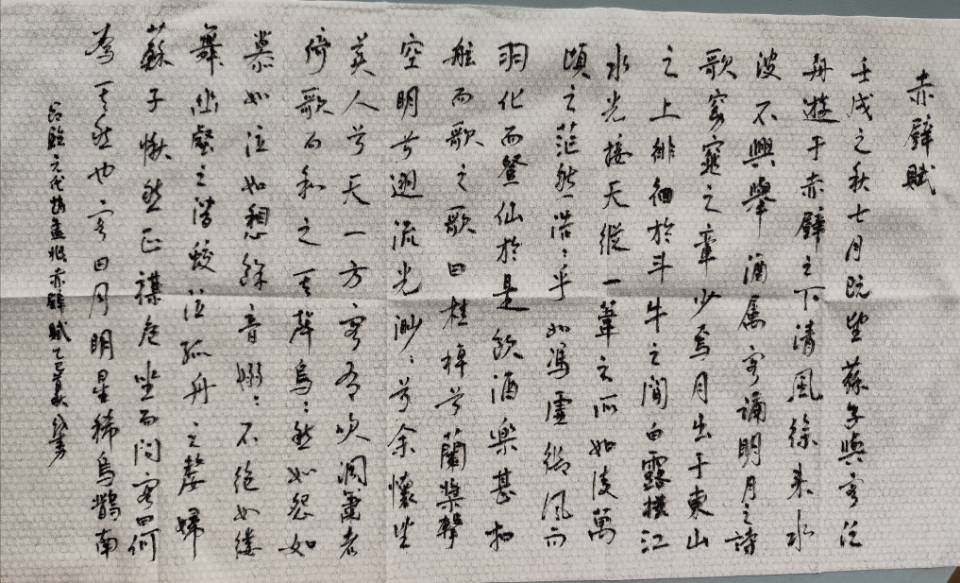 赤壁賦
壬戌之秋七月既望蘇子與客泛
舟遊于赤壁之下清風徐来水
波不興舉酒属客誦明月之詩
歌窈窕之章少焉月出于東山
之上徘徊於斗牛之間白露横江
水光接天縱一葦之所如凌萬
頃之茫然浩:乎如馮虚御風而
羽化而登仙於是飲酒樂甚扣
舷而歌之歌曰桂棹兮蘭槳擊
空明兮溯流光渺:兮余懷望
美人兮天一方客有吹洞簫者
倚歌而和之其聲烏:然如怨如
慕如泣如想餘音嫋:不絕如缕
舞幽壑之潜蛟泣孤舟之嫠婦
蘇子愀然正襟危坐而問客曰何
為其然也客曰月明星稀烏鵲南
元代趙孟頫赤壁賦乙巳夏